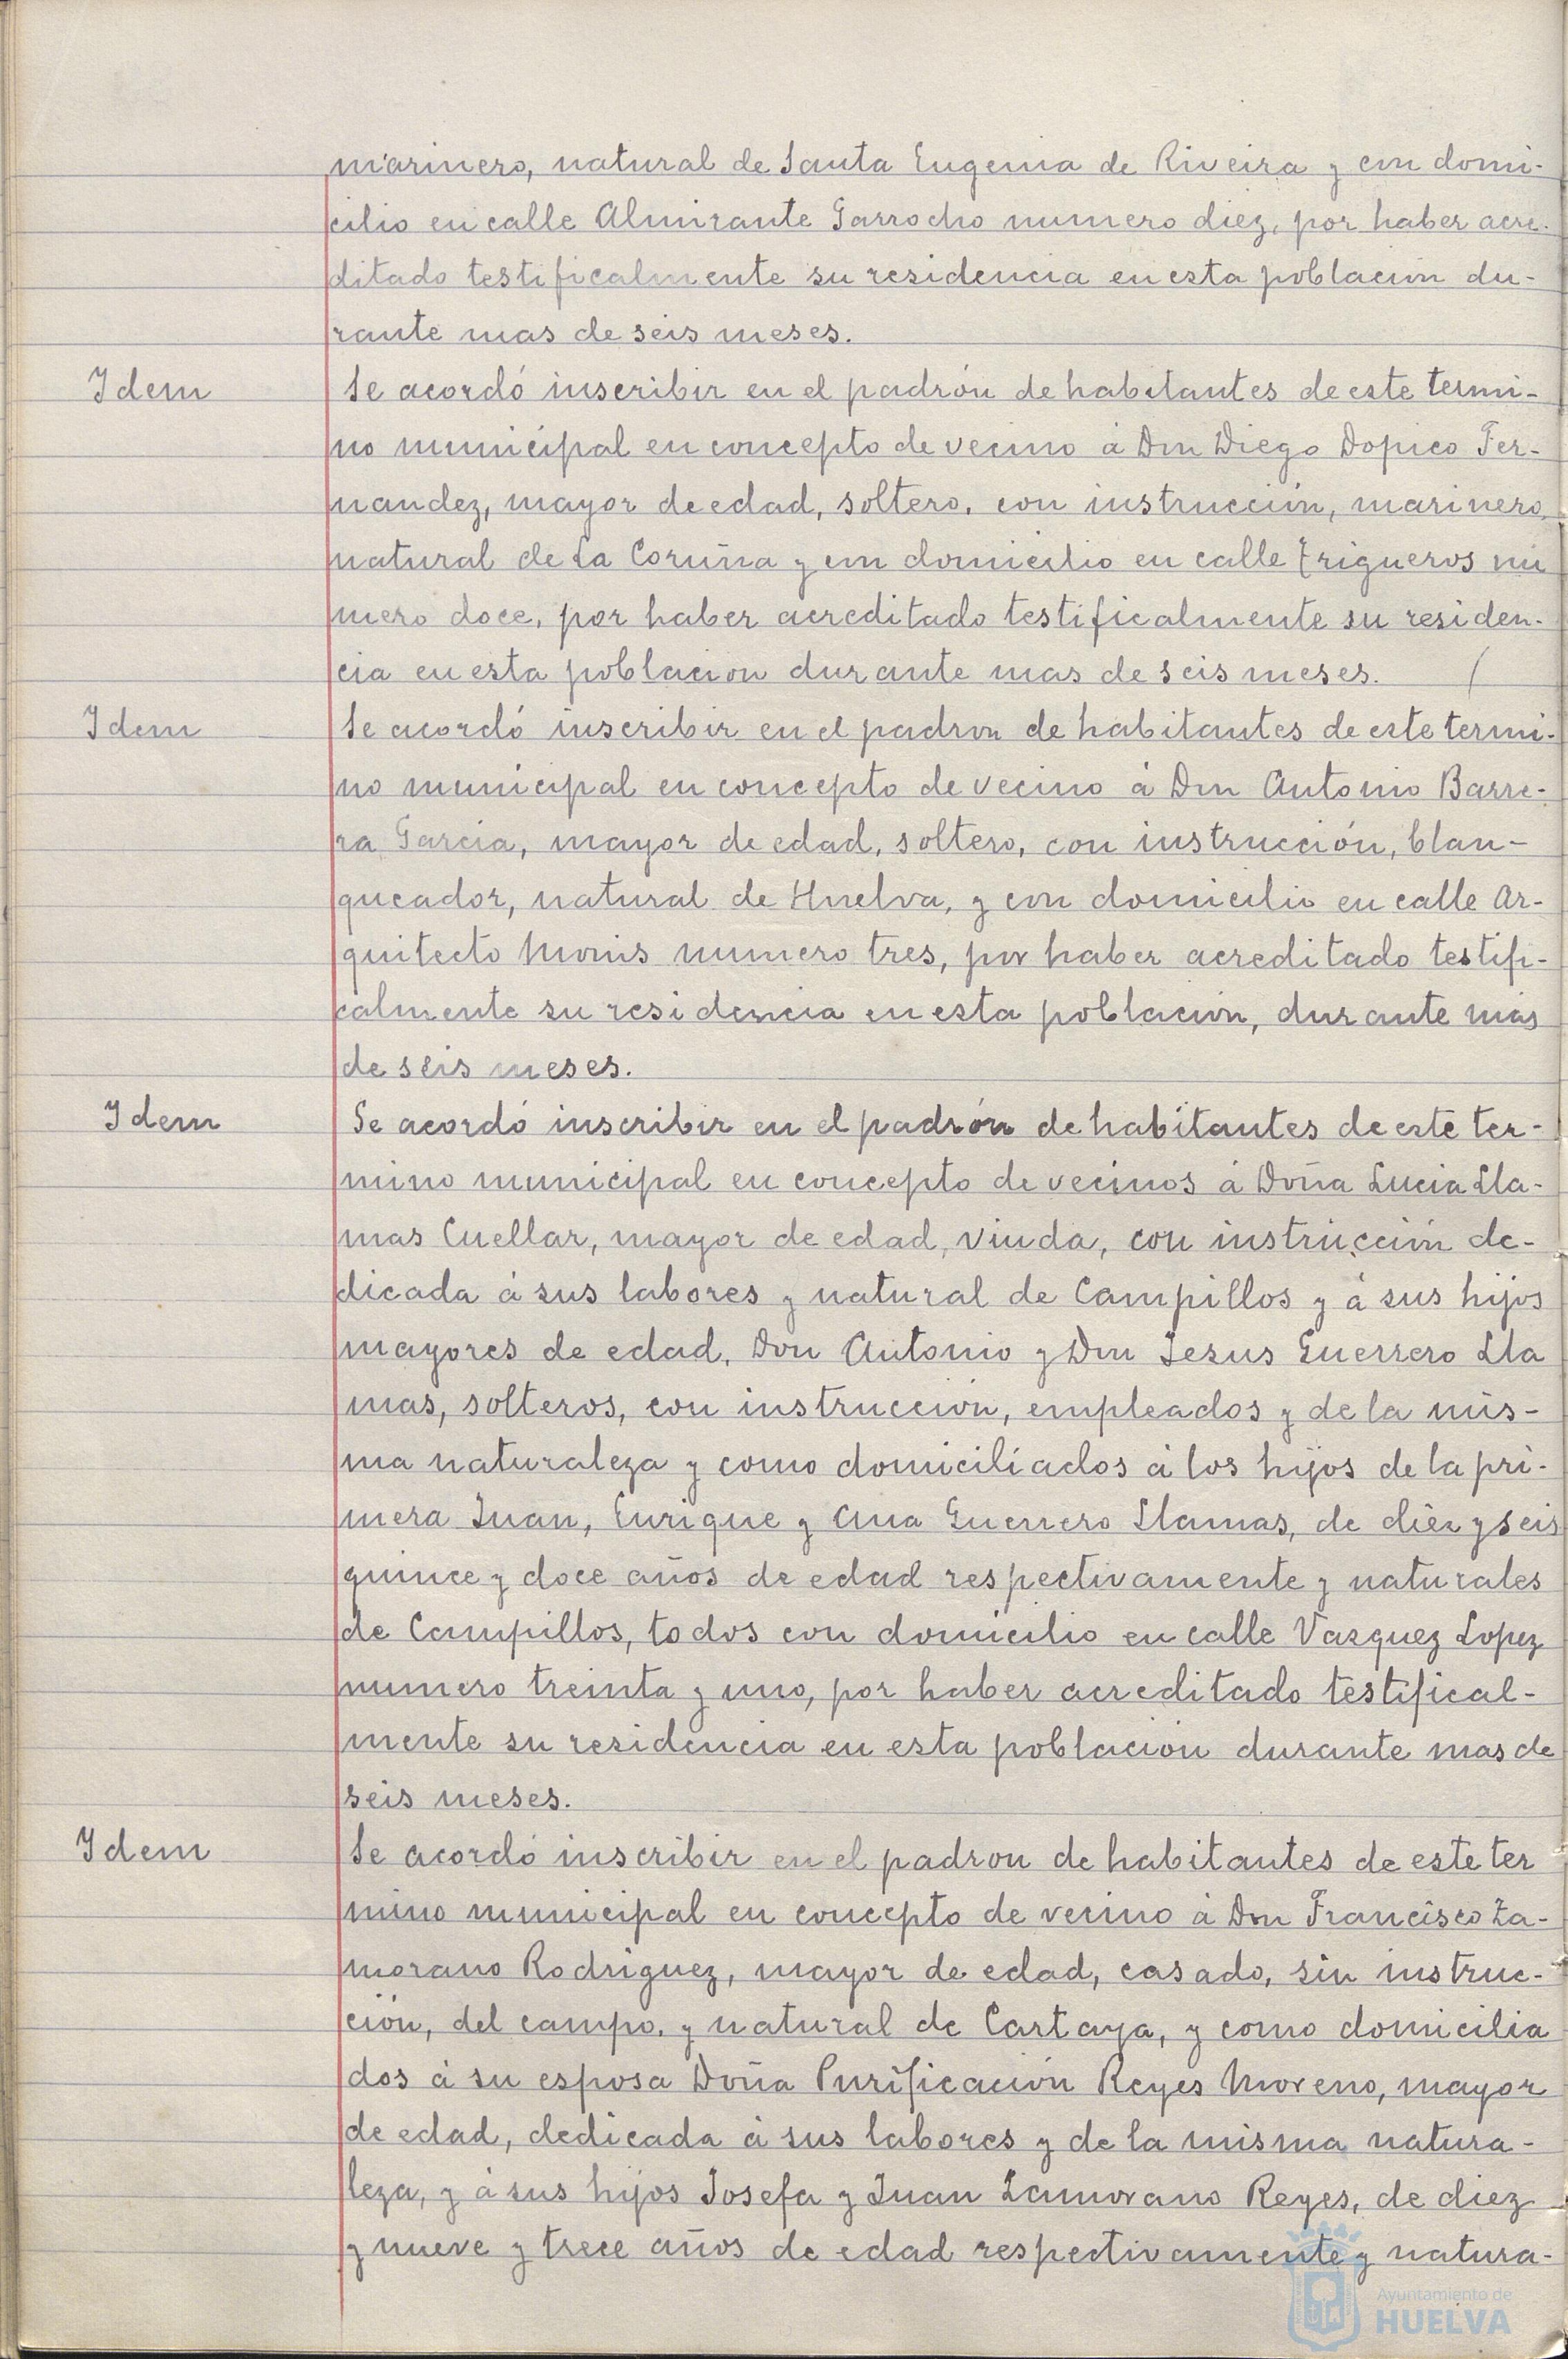 marinero, natural de Santa Eugenia de Riveira y con domi-
cilio en calle Almirante Garrocho numero diez, por haber acre-
ditado testificalmente su residencia en esta poblacion du-
rante mas de seis meses.
Idem
Se acordó inscribir en el padrón de habitantes de este termi-
no municipal en concepto de vecino á Don Diego Dopico Fer-
nandez, mayor de edad, soltero, con instrucción, marinero,
natural de La Coruña y con domicilio en calle Trigueros nu
mero doce, por haber acreditado testificalmente su residen-
cia en esta poblacion durante mas de seis meses. /
Idem
Se acordó inscribir en el padron de habitantes de este termi-
no municipal en concepto de vecino á Don Antonio Barre-
ra Garcia, mayor de edad, soltero, con instrucción, blan-
queador, natural de Huelva, y con domicilio en calle Ar-
quitecto Monis numero tres, por haber acreditado testifi-
calmente su residencia en esta población, durante mas
de seis meses.
Idem
Se acordó inscribir en el padrón de habitantes de este ter-
mino municipal en concepto de vecinos á Doña Lucia Lla-
mas Cuellar, mayor de edad, viuda, con instrucción de-
dicada á sus labores y natural de Campillos y á sus hijos
mayores de edad, Don Antonio y Don Jesus Guerrero Lla
mas, solteros, con instruccion, empleados y de la mis-
ma naturaleza y como domiciliados á los hijos de la pri-
mera Juan, Enrique y Ana Guerrero Llamas, de diez y seis
quince y doce años de edad respectivamente y naturales
de Campillos, todos con domicilio en calle Vazquez Lopez
numero treinta y uno, por haber acreditado testifical-
mente su residencia en esta poblacion durante mas de
seis meses.
Idem
Se acordó inscribir en el padron de habitantes de este ter
mino municipal en concepto de vecino á Don Francisco Za-
morano Rodriguez, mayor de edad, casado, sin instruc-
ción, del campo, y natural de Cartaya, y como domicilia
dos á su esposa Doña Purificación Reyes Moreno, mayor
de edad, dedicada á sus labores y de la misma natura-
leza, y á sus hijos Josefa y Juan Zamorano Reyes, de diez
y nueve y trece años de edad respectivamente y natura-
Ayuntamiento de
HUELVA